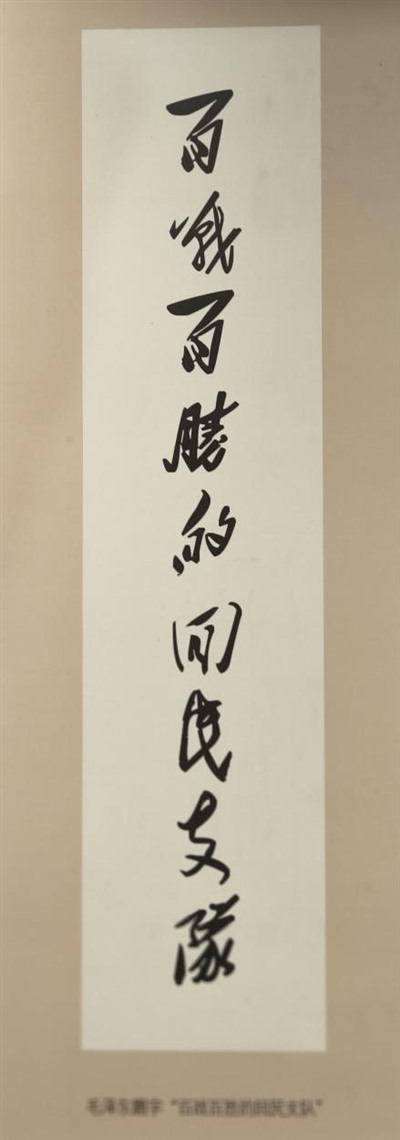 百戰百勝的回民支隊
毛泽东题字“百战百胜的回民支队”